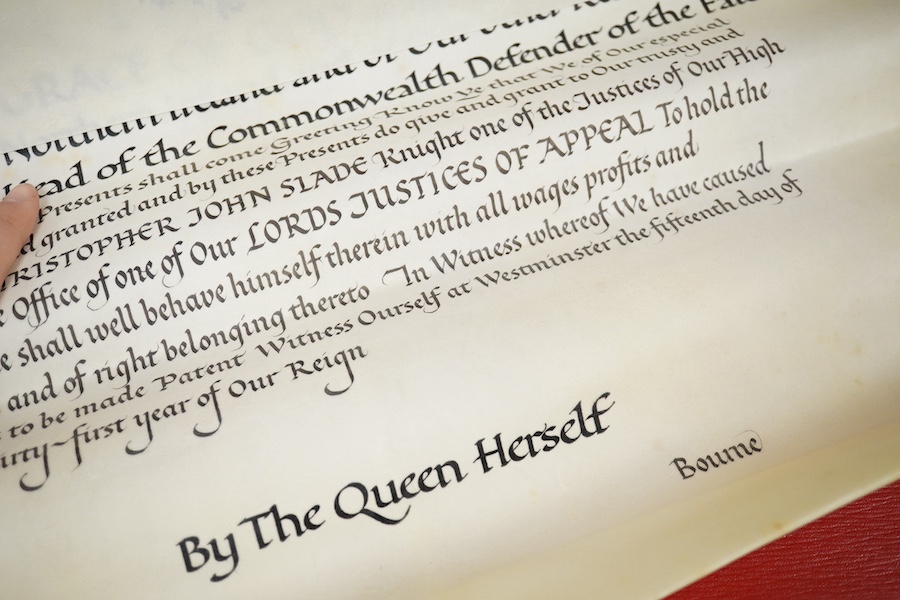 Northern Ireland and of Our other
Head of the Commonwealth Defender of the
Presents shall come Greeting Know Ye that We of Our especial
granted and by these Presents do give and grant to Our trusty and
JOHN SLADE Knight one of the Justices of Our High
Office of one of Our LORDS JUSTICES OF APPEAL To hold the
shall well behave himself therein with all wages profits and
and of right belonging thereto In Witness whereof We have caused
to be made Patent Witness Ourself at Westminster the fifteenth day of
year of Our Reign
By The Queen Herself
Bourne